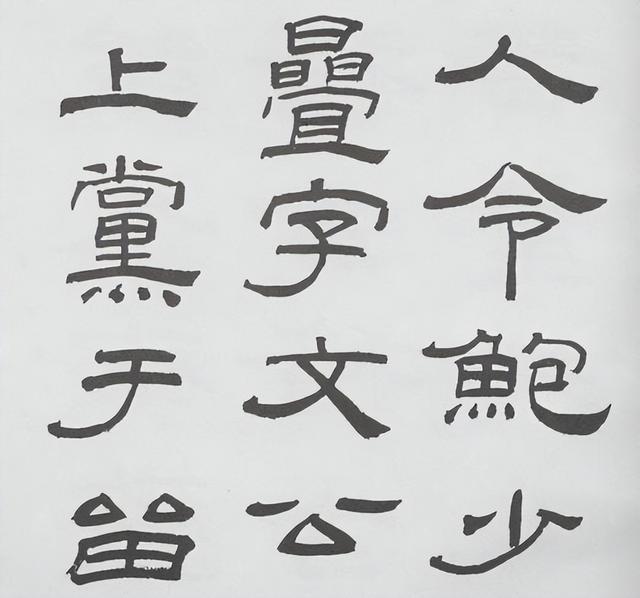 人令鮑少
疊字文公
上黨于留